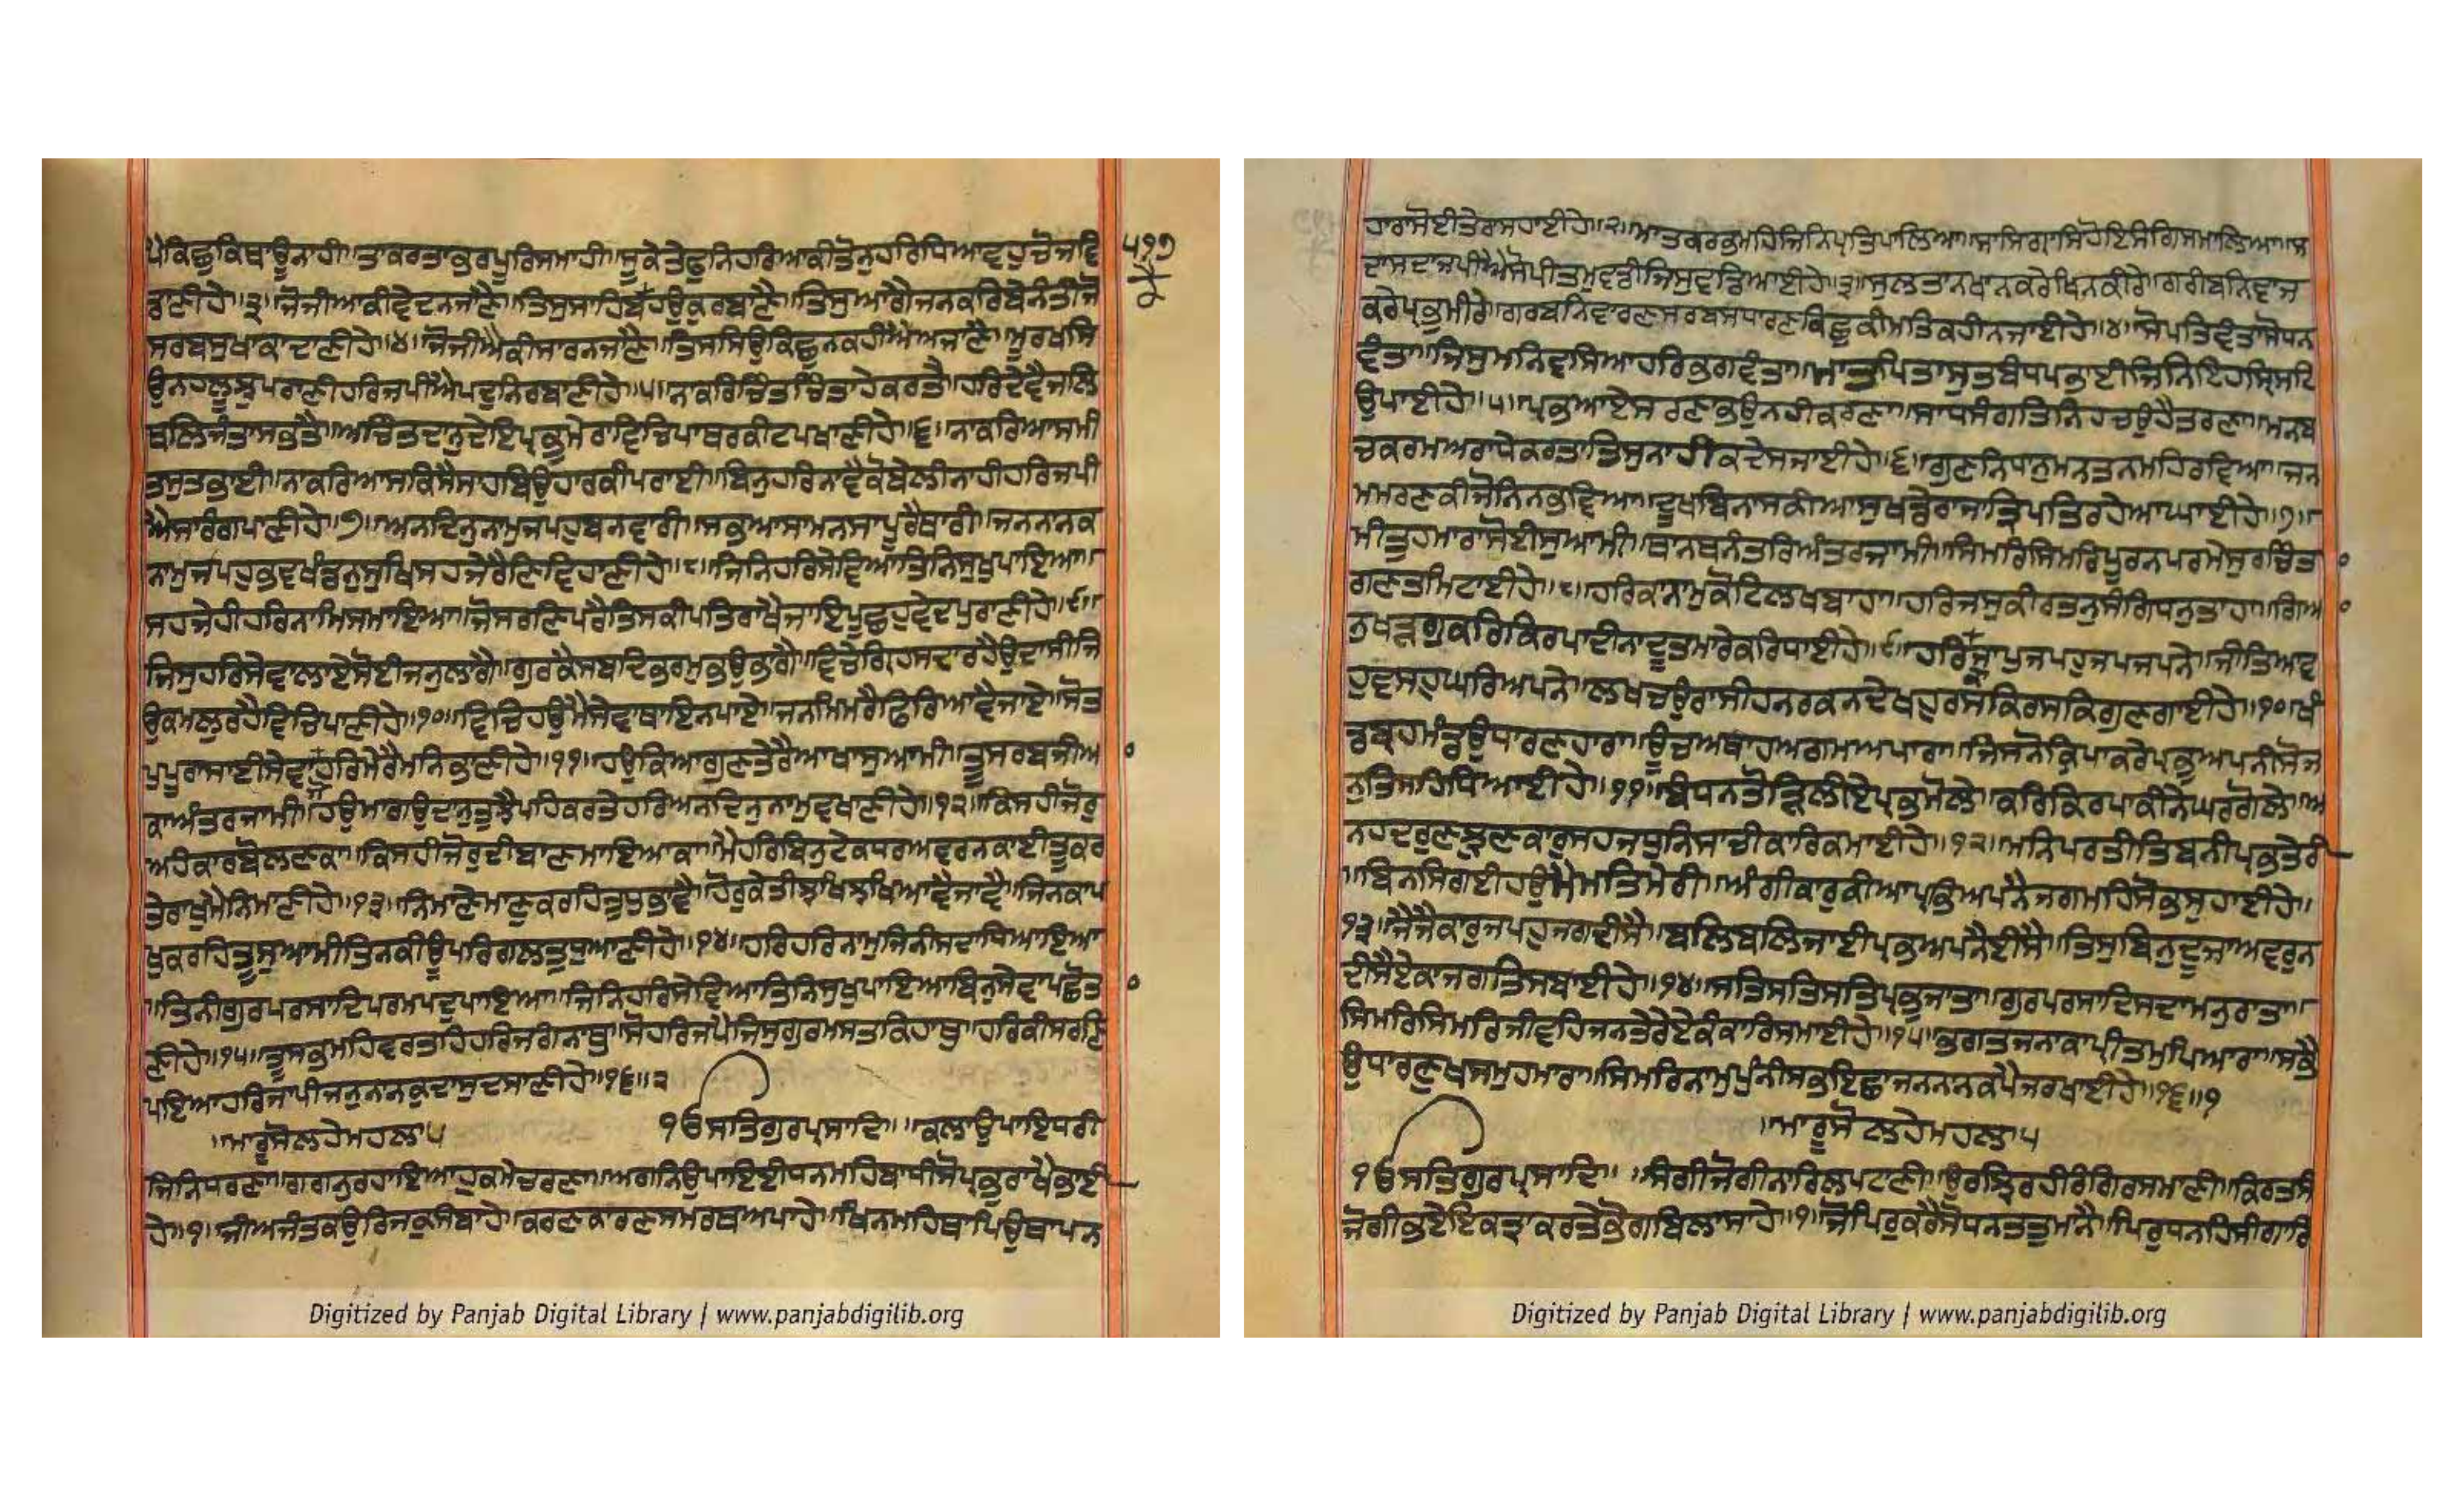 ਪੈਕਿਛੁਕਿਥਾਊਨਾਹੀ॥ਤਾਕਰਤਾਭਰਪੂਰਿਸਮਾਹੀ॥ਸੂਕੇਤੇਫੁਨਿਹਰਿਆਕੀਤੋਨੁਹਰਿਧਿਆਵਹੁਚੋਜਵਿ ੫੧੭
ਡਾਣੀਹੇ॥੩॥ਜੋਜੀਆਕੀਵੇਦਨਜਾਣੈ॥ਤਿਸੁਸਾਹਿਬਕੈਹਉਕੁਰਬਾਣੈ॥ਤਿਸੁਆਗੈਜਨਕਰਿਬੇਨੰਤੀਜੋ
ਸਰਬਸੁਖਾਕਾਦਾਣੀਹੇ॥੪॥ਜੋਜੀਐਕੀਸਾਰਨਜਾਣੈ॥ਤਿਸਸਿਉਕਿਛੁਨਕਹੀਐਅਜਾਣੈ॥ਮੂਰਖਸਿ
ਉਨਹਲੂਝੁਪਰਾਣੀਹਰਿਜਪੀਐਪਦੁਨਿਰਬਾਣੀਹੇ॥੫॥ਨਾਕਰਿਚਿੰਤਚਿੰਤਾਹੇਕਰਤੈ॥ਹਰਿਦੇਵੈਜਲਿ
ਥਲਿਜੰਤਾਸਭਤੈ॥ਅਚਿੰਤਦਾਨੁਦੇਇਪ੍ਰਭੁਮੇਰਾਵਿਚਿਪਾਥਰਕੀਟਪਖਾਣੀਹੇ॥੬॥ਨਾਕਰਿਆਸਮੀ
ਤਸੁਤਭਾਈ॥ਨਾਕਰਿਆਸਕਿਸੈਸਾਹਬਿਉਹਾਰਕੀਪਰਾਈ॥ਬਿਨੁਹਰਿਨਾਵੈਕੋਬੇਲੀਨਾਹੀਹਰਿਜਪੀ
ਐਸਾਰੰਗਪਾਣੀਹੇ॥੭॥ਅਨਦਿਨੁਨਾਮੁਜਪਹੁਬਨਵਾਰੀ॥ਸਭਆਸਾਮਨਸਾਪੂਰੈਥਾਰੀ॥ਜਨਨਾਨਕ
ਨਾਮੁਜਪਹੁਭਵਖੰਡਨੁਸੁਖਿਸਹਜੇਰੈਣਿਵਿਹਾਣੀਹੇ॥੮॥ਜਿਨਿਹਰਿਸੇਵਿਆਤਿਨਿਸੁਖੁਪਾਇਆ॥
ਸਹਜੇਹੀਹਰਿਨਾਮਿਸਮਾਇਆ॥ਜੋਸਰਣਿਪਰੈਤਿਸਕੀਪਤਿਰਾਖੈਜਾਇਪੂਛਹੁਵੇਦਪੁਰਾਣੀਹੇ॥੯॥
ਜਿਸੁਹਰਿਸੇਵਾਲਾਏਸੋਈਜਨੁਲਾਗੈ॥ਗੁਰਕੈਸਬਦਿਭਰਮੁਭਉਭਾਗੈ॥ਵਿਚੇਗ੍ਰਿਹਸਦਾਰਹੈਉਦਾਸੀਜਿ
ਉਕਮਲੁਰਹੈਵਿਚਿਪਾਣੀਹੇ॥੧੦॥ਵਿਚਿਹਉਮੈਸੇਵਾਥਾਇਨਪਾਏ॥ਜਨਮਿਮਰੈਫਿਰਿਆਵੈਜਾਏ॥ਸੋਤ
ਪੁਪੂਰਾਸਾਈਸੇਵਾਹਰਿਮੇਰੈਮਨਿਭਾਣੀਹੇ॥੧੧॥ਹਉਕਿਆਗੁਣਤੇਰੈਆਖਾਸੁਆਮੀ॥ਤੂਸਰਬਜੀਅ
ਕਾਅੰਤਰਜਾਮੀ॥ਹਉਮਾਗਉਦਾਨੁਤੁਝੈਪਹਿਕਰਤੇਹਰਿਅਨਦਿਨੁਨਾਮੁਵਖਾਣੀਹੇ॥੧੨॥ਕਿਸਹੀਜੋਰੁ
ਅਹੰਕਾਰਬੋਲਣਕਾ॥ਕਿਸਹੀਜੋਰੁਦੀਬਾਣਮਾਇਆਕਾ॥ਮੈਹਰਿਬਿਨੁਟੇਕਧਰਅਵਰਨਕਾਈਤੂਕਰ
ਤੇਰਾਖੁਮੈਨਿਮਾਣੀਹੇ॥੧੩॥ਨਿਮਾਣੇਮਾਣੁਕਰਹਿਤੁਧੁਭਾਵੈ॥ਹੋਰਕੇਤੀਝਖਿਝਖਿਆਵੈਜਾਵੈ॥ਜਿਨਕਾਪ
ਖੁਕਰਹਿਤੂਸੁਆਮੀਤਿਨਕੀਊਪਰਿਗਲਤੁਧੁਆਣੀਹੇ॥੧੪॥ਹਰਿਹਰਿਨਾਮੁਜਿਨੀਸਦਾਧਿਆਇਆ
॥ਤਿਨੀਗੁਰਪਰਸਾਦਿਪਰਮਪਦੁਪਾਇਆ॥ਜਿਨਿਹਰਿਸੇਵਿਆਤਿਨਿਸੁਖੁਪਾਇਆਬਿਨੁਸੇਵਾਪਛੋਤਾ
ਣੀਹੇ॥੧੫॥ਤੂਸਭਮਹਿਵਰਤਹਿਹਰਿਜਗੰਨਾਥੁ॥ਸੋਹਰਿਜਪੈਜਿਸੁਗੁਰਮਸਤਕਿਹਾਥੁ॥ਹਰਿਕੀਸਰਣਿ
ਪਇਆਹਰਿਜਾਪੀਜਨੁਨਾਨਕੁਦਾਸੁਦਸਾਣੀਹੇ॥੧੬॥੨
॥ਮਾਰੂਸੋਲਹੇਮਹਲਾ੫ ੴਸਤਿਗੁਰਪ੍ਰਸਾਦਿ॥ ॥ਕਲਾਉਪਾਇਧਰੀ
ਜਿਨਿਧਰਣਾ॥ਗਗਨੁਰਹਾਇਆਹੁਕਮੇਚਰਣਾ॥ਅਗਨਿਉਪਾਇਈਧਨਮਹਿਬਾਧੀਸੋਪ੍ਰਭੁਰਾਖੈਭਾਈ
ਹੇ॥੧॥ਜੀਅਜੰਤਕਉਰਿਜਕੁਸੰਬਾਹੇ॥ਕਰਣਕਾਰਣਸਮਰਥਆਪਾਹੇ॥ਖਿਨਮਹਿਥਾਪਿਉਥਾਪਨ
ਹਾਰਾਸੋਈਤੇਰਾਸਹਾਈਹੇ॥੨॥ਮਾਤਗਰਭਮਹਿਜਿਨਿਪ੍ਰਤਿਪਾਲਿਆ॥ਸਾਸਿਗ੍ਰਾਸਿਹੋਇਸੰਗਿਸਮਾਲਿਆ॥ਸ
ਦਾਸਦਾਜਪੀਐਸੋਪ੍ਰੀਤਮੁਵਡੀਜਿਸੁਵਡਿਆਈਹੇ॥੩॥ਸੁਲਤਾਨਖਾਨਕਰੇਖਿਨਕੀਰੇ॥ਗਰੀਬਨਿਵਾਜਿ
ਕਰੇਪ੍ਰਭੁਮੀਰੇ॥ਗਰਬਨਿਵਾਰਣਸਰਬਸਧਾਰਣਕਿਛੁਕੀਮਤਿਕਹੀਨਜਾਈਹੇ॥੪॥ਸੋਪਤਿਵੰਤਾਸੋਧਨ
ਵੰਤਾ॥ਜਿਸੁਮਨਿਵਸਿਆਹਰਿਭਗਵੰਤਾ॥ਮਾਤਪਿਤਾਸੁਤਬੰਧਪਭਾਈਜਿਨਿਇਹਸ੍ਰਿਸਟਿ
ਉਪਾਈਹੇ॥੫॥ਪ੍ਰਭਆਏਸਰਣਾਭਉਨਹੀਕਰਣਾ॥ਸਾਧਸੰਗਤਿਨਿਹਚਉਹੈਤਰਣਾ॥ਮਨਬ
ਚਕਰਮਅਰਾਧੇਕਰਤਾਤਿਸੁਨਾਹੀਕਦੇਸਜਾਈਹੇ॥੬॥ਗੁਣਨਿਧਾਨੁਮਨਤਨਮਹਿਰਵਿਆ॥ਜਨ
ਮਮਰਣਕੀਜੋਨਿਨਭਵਿਆ॥ਦੂਖਬਿਨਾਸਕੀਆਸੁਖਡੇਰਾਜਾਤ੍ਰਿਪਤਿਰਹੇਆਘਾਈਹੇ॥੭॥
ਮੀਤੁਹਮਾਰਾਸੋਈਸੁਆਮੀ॥ਥਾਨਥਨੰਤਰਿਅੰਤਰਜਾਮੀ॥ਸਿਮਰਿਸਿਮਰਿਪੂਰਨਪਰਮੇਸੁਰਚਿੰਤਾ
ਗਣਤਮਿਟਾਈਹੇ॥੮॥ਹਰਿਕਾਨਾਮੁਕੋਟਿਲਖਬਾਹਾ॥ਹਰਿਜਸੁਕੀਰਤਨੁਸੰਗਿਧਨੁਤਾਹਾ॥ਗਿਆ
ਨੁਖੜਗੁਕਰਿਕਿਰਪਾਦੀਨਾਦੂਤਮਾਰੇਕਰਿਧਾਈਹੇ॥੯॥ਹਰਿਜਾਪੁਜਪਹੁਜਪਜਪਨੇ॥ਜੀਤਿਆਵ
ਹੁਵਸਹੁਘਰਿਅਪਨੇ॥ਲਖਚਉਰਾਸੀਹਨਰਕਨਦੇਖਹੁਰਸਕਿਰਸਕਿਗੁਣਗਾਈਹੇ॥੧੦॥ਖੰ
ਡਬ੍ਰਹਮੰਡਉਧਾਰਣਹਾਰਾ॥ਊਚਅਥਾਹਅਗਮਅਪਾਰਾ॥ਜਿਸਨੋਕ੍ਰਿਪਾਕਰੇਪ੍ਰਭੁਅਪਨੀਸੋਜ
ਨੁਤਿਸਹਿਧਿਆਈਹੇ॥੧੧॥ਬੰਧਨਤੋੜਿਲੀਏਪ੍ਰਭਿਮੋਲੇ॥ਕਰਿਕਿਰਪਾਕੀਨੇਘਰਗੋਲੇ॥ਅ
ਨਹਦਰੁਣਝੁਣਕਾਰੁਸਹਜਧੁਨਿਸਾਚੀਕਾਰਕਮਾਈਹੇ॥੧੨॥ਮਨਿਪਰਤੀਤਿਬਨੀਪ੍ਰਭਤੇਰੀ
॥ਬਿਨਸਿਗਈਹਉਮੈਮਤਿਮੇਰੀ॥ਅੰਗੀਕਾਰੁਕੀਆਪ੍ਰਭਿਅਪਨੈਜਗਮਹਿਸੋਭਸੁਹਾਈਹੇ॥
੧੩॥ਜੈਜੈਕਾਰੁਜਪਹੁਜਗਦੀਸੈ॥ਬਲਿਬਲਿਜਾਈਪ੍ਰਭਅਪਨੈਈਸੈ॥ਤਿਸੁਬਿਨੁਦੂਜਾਅਵਰੁਨ
ਦੀਸੈਏਕਾਜਗਤਿਸਬਾਈਹੇ॥੧੪॥ਸਤਿਸਤਿਸਤਿਪ੍ਰਭੁਜਾਤਾ॥ਗੁਰਪਰਸਾਦਿਸਦਾਮਨੁਰਾਤਾ॥
ਸਿਮਰਿਸਿਮਰਿਜੀਵਹਿਜਨਤੇਰੇਏਕੰਕਾਰਿਸਮਾਈਹੇ॥੧੫॥ਭਗਤਜਨਾਕਾਪ੍ਰੀਤਮੁਪਿਆਰਾ॥ਸਭੈ
ਉਧਾਰਣੁਖਸਮੁਹਮਾਰਾ॥ਸਿਮਰਿਨਾਮੁਪੁੰਨੀਸਭਇਛਾਜਨਨਾਨਕਪੈਜਰਖਾਈਹੇ॥੧੬॥੧
॥ਮਾਰੂਸੋਲਹੇਮਹਲਾ੫
ੴਸਤਿਗੁਰਪ੍ਰਸਾਦਿ॥ ॥ਸੰਗੀਜੋਗੀਨਾਰਿਲਪਟਾਣੀ॥ਉਰਝਿਰਹੀਰੰਗਿਰਸਮਾਣੀ॥ਕਿਰਤਸੰ
ਜੋਗੀਭਏਇਕਤ੍ਰਾਕਰਤੇਭੋਗਬਿਲਾਸਾਹੇ॥੧॥ਜੋਪਿਰੁਕਰੈਸੋਧਨਤਤੁਮਾਨੈ॥ਪਿਰੁਧਨਹਿਸੀਗਾਰਿ
Digitized by Panjab Digital Library | www.panjabdigilib.org
Digitized by Panjab Digital Library | www.panjabdigilib.org